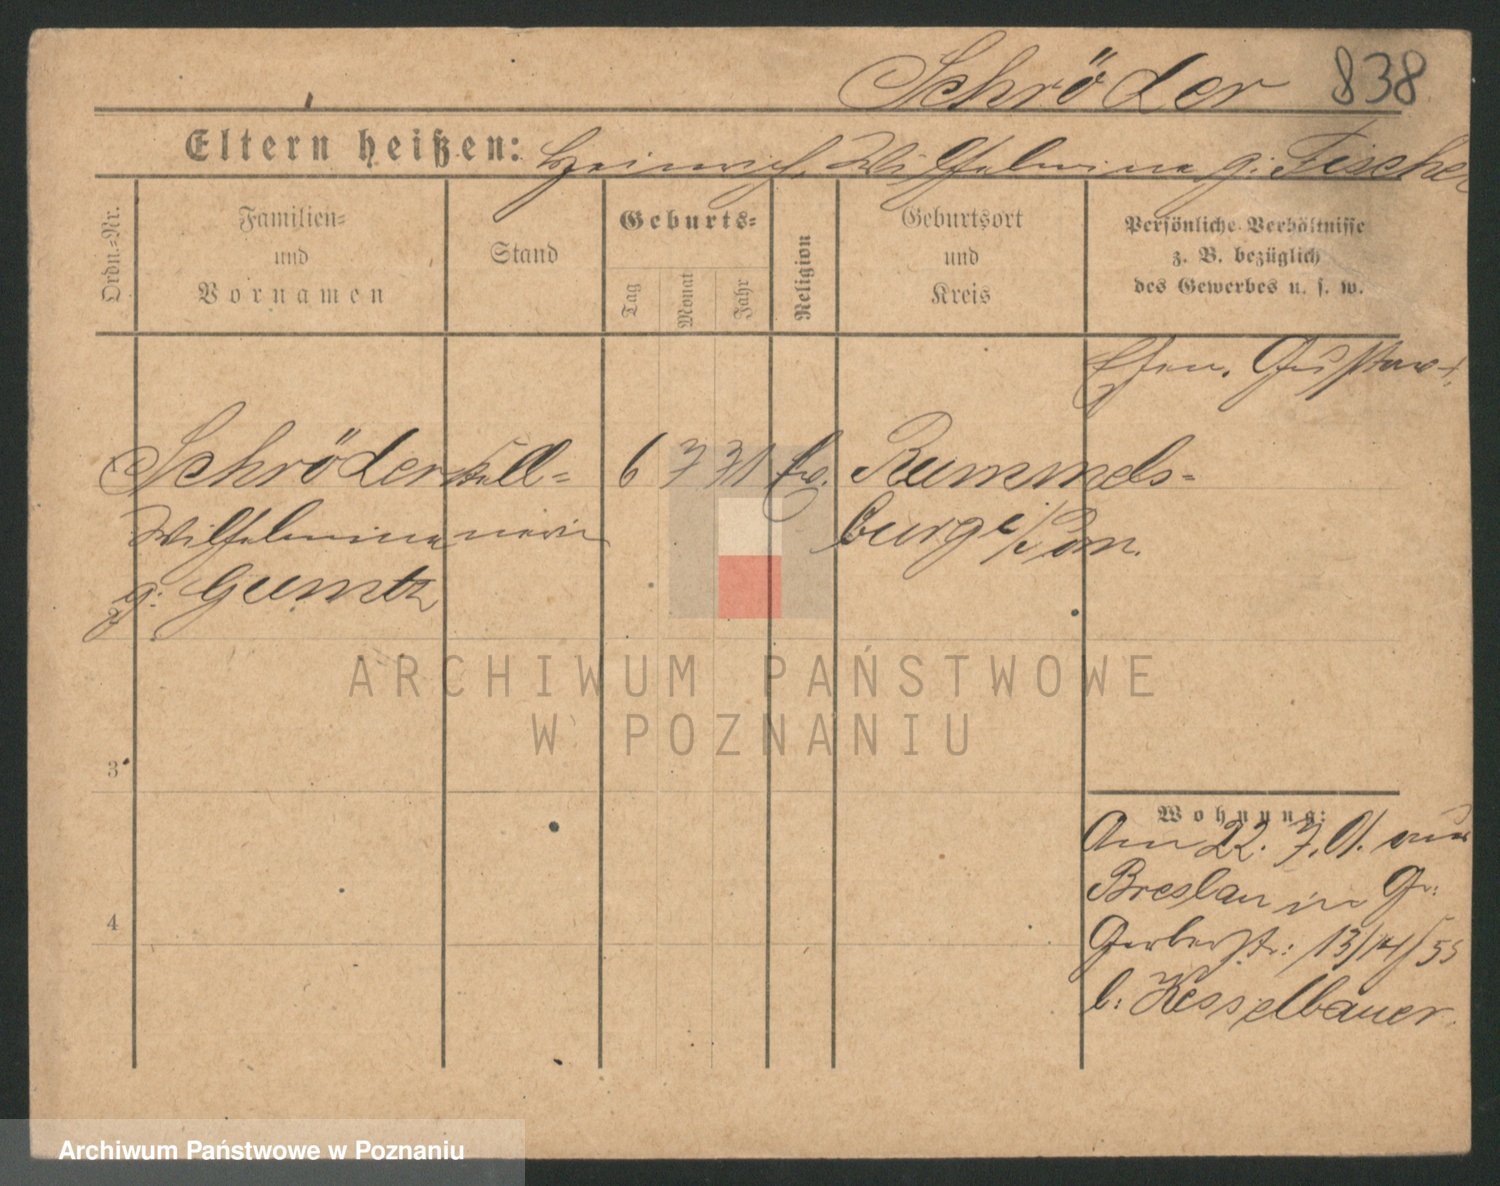 Schröder 838
Eltern heißen: Heinrich, Wilhelmine g: Fischer
Ordn.=Nr.
Familien=
und
Vornamen
Stand
Geburts=
Tag
Monat
Jahr
Religion
Geburtsort
und
Kreis
Persönliche Verhältnisse
z. B. bezüglich
des Gewerbes u. s. w.
Ehem. Gustav
1
Schröder
Wilhelmine
g: Gumtz
Kell=
nerin
6 7 71
Rummels=
burg i/Pom.
2
3
4
Wohnung:
Am 22. 7. 01. aus
Breslau in Gr:
Gerberstr: 13/14/55
b: Kesselbauer.
ARCHIWUM PAŃSTWOWE
W POZNANIU
Archiwum Państwowe w Poznaniu